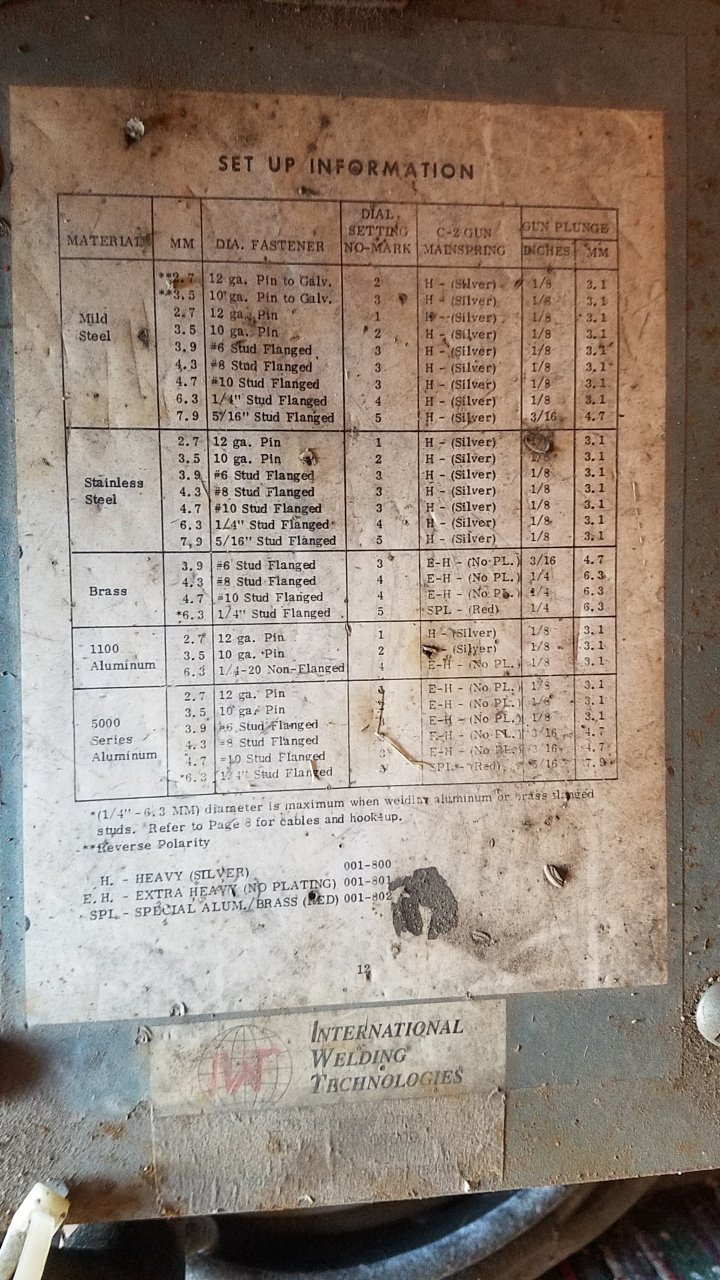 SET UP INFORMATION
MATERIAL MM DIA. FASTENER DIAL SETTING NO-MARK C-2 GUN MAINSPRING GUN PLUNGE INCHES MM
Mild Steel
**2.7 12 ga. Pin to Galv. 2 H - (Silver) 1/8 3.1
**3.5 10 ga. Pin to Galv. 3 H - (Silver) 1/8 3.1
2.7 12 ga. Pin 1 H - (Silver) 1/8 3.1
3.5 10 ga. Pin 2 H - (Silver) 1/8 3.1
3.9 #6 Stud Flanged 3 H - (Silver) 1/8 3.1
4.3 #8 Stud Flanged 3 H - (Silver) 1/8 3.1
4.7 #10 Stud Flanged 3 H - (Silver) 1/8 3.1
6.3 1/4" Stud Flanged 4 H - (Silver) 1/8 3.1
7.9 5/16" Stud Flanged 5 H - (Silver) 3/16 4.7
Stainless Steel
2.7 12 ga. Pin 1 H - (Silver) 3.1
3.5 10 ga. Pin 2 H - (Silver) 1/8 3.1
3.9 #6 Stud Flanged 3 H - (Silver) 1/8 3.1
4.3 #8 Stud Flanged 3 H - (Silver) 1/8 3.1
4.7 #10 Stud Flanged 3 H - (Silver) 1/8 3.1
6.3 1/4" Stud Flanged 4 H - (Silver) 1/8 3.1
7.9 5/16" Stud Flanged 5 H - (Silver) 1/8 3.1
Brass
3.9 #6 Stud Flanged 3 E-H - (No PL.) 3/16 4.7
4.3 #8 Stud Flanged 4 E-H - (No PL.) 1/4 6.3
4.7 #10 Stud Flanged 4 E-H - (No PL.) 1/4 6.3
*6.3 1/4" Stud Flanged 5 SPL - (Red) 1/4 6.3
1100 Aluminum
2.7 12 ga. Pin 1 H - (Silver) 1/8 3.1
3.5 10 ga. Pin 2 (Silver) 1/8 3.1
6.3 1/4-20 Non-Flanged 4 E-H - (No PL.) 1/8 3.1
5000 Series Aluminum
2.7 12 ga. Pin E-H - (No PL.) 1/8 3.1
3.5 10 ga. Pin E-H - (No PL.) 1/8 3.1
3.9 #6 Stud Flanged E-H - (No PL.) 1/8 3.1
4.3 #8 Stud Flanged E-H - (No PL.) 3/16 4.7
4.7 #10 Stud Flanged 3 E-H - (No PL.) 3/16 4.7
*6.3 1/4" Stud Flanged 5 SPL - (Red) 5/16 7.9
*(1/4" - 6.3 MM) diameter is maximum when welding aluminum or brass flanged
studs. Refer to Page 8 for cables and hook-up.
**Reverse Polarity
H. - HEAVY (SILVER) 001-800
E. H. - EXTRA HEAVY (NO PLATING) 001-801
SPL - SPECIAL ALUM./BRASS (RED) 001-802
12
IWT
INTERNATIONAL
WELDING
TECHNOLOGIES